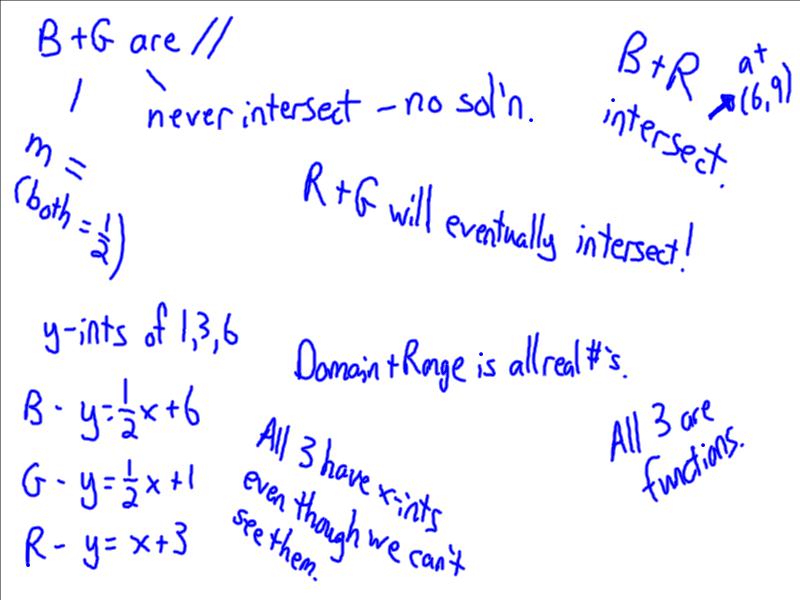 B+G are //
never intersect - no sol'n.
m =
(both = 1/2)
B+R
intersect.
at
(6,9)
R+G will eventually intersect!
y-ints of 1,3,6
Domain + Range is all real #'s.
B - y=1/2x+6
G - y=1/2x+1
R - y= x+3
All 3 have x-ints
even though we can't
see them.
All 3 are
functions.